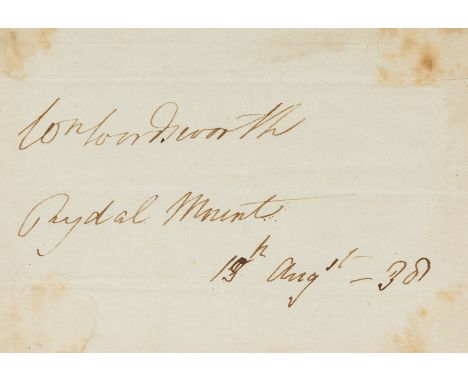 Wm Wordsworth
Rydal Mount
13th Augst – 38